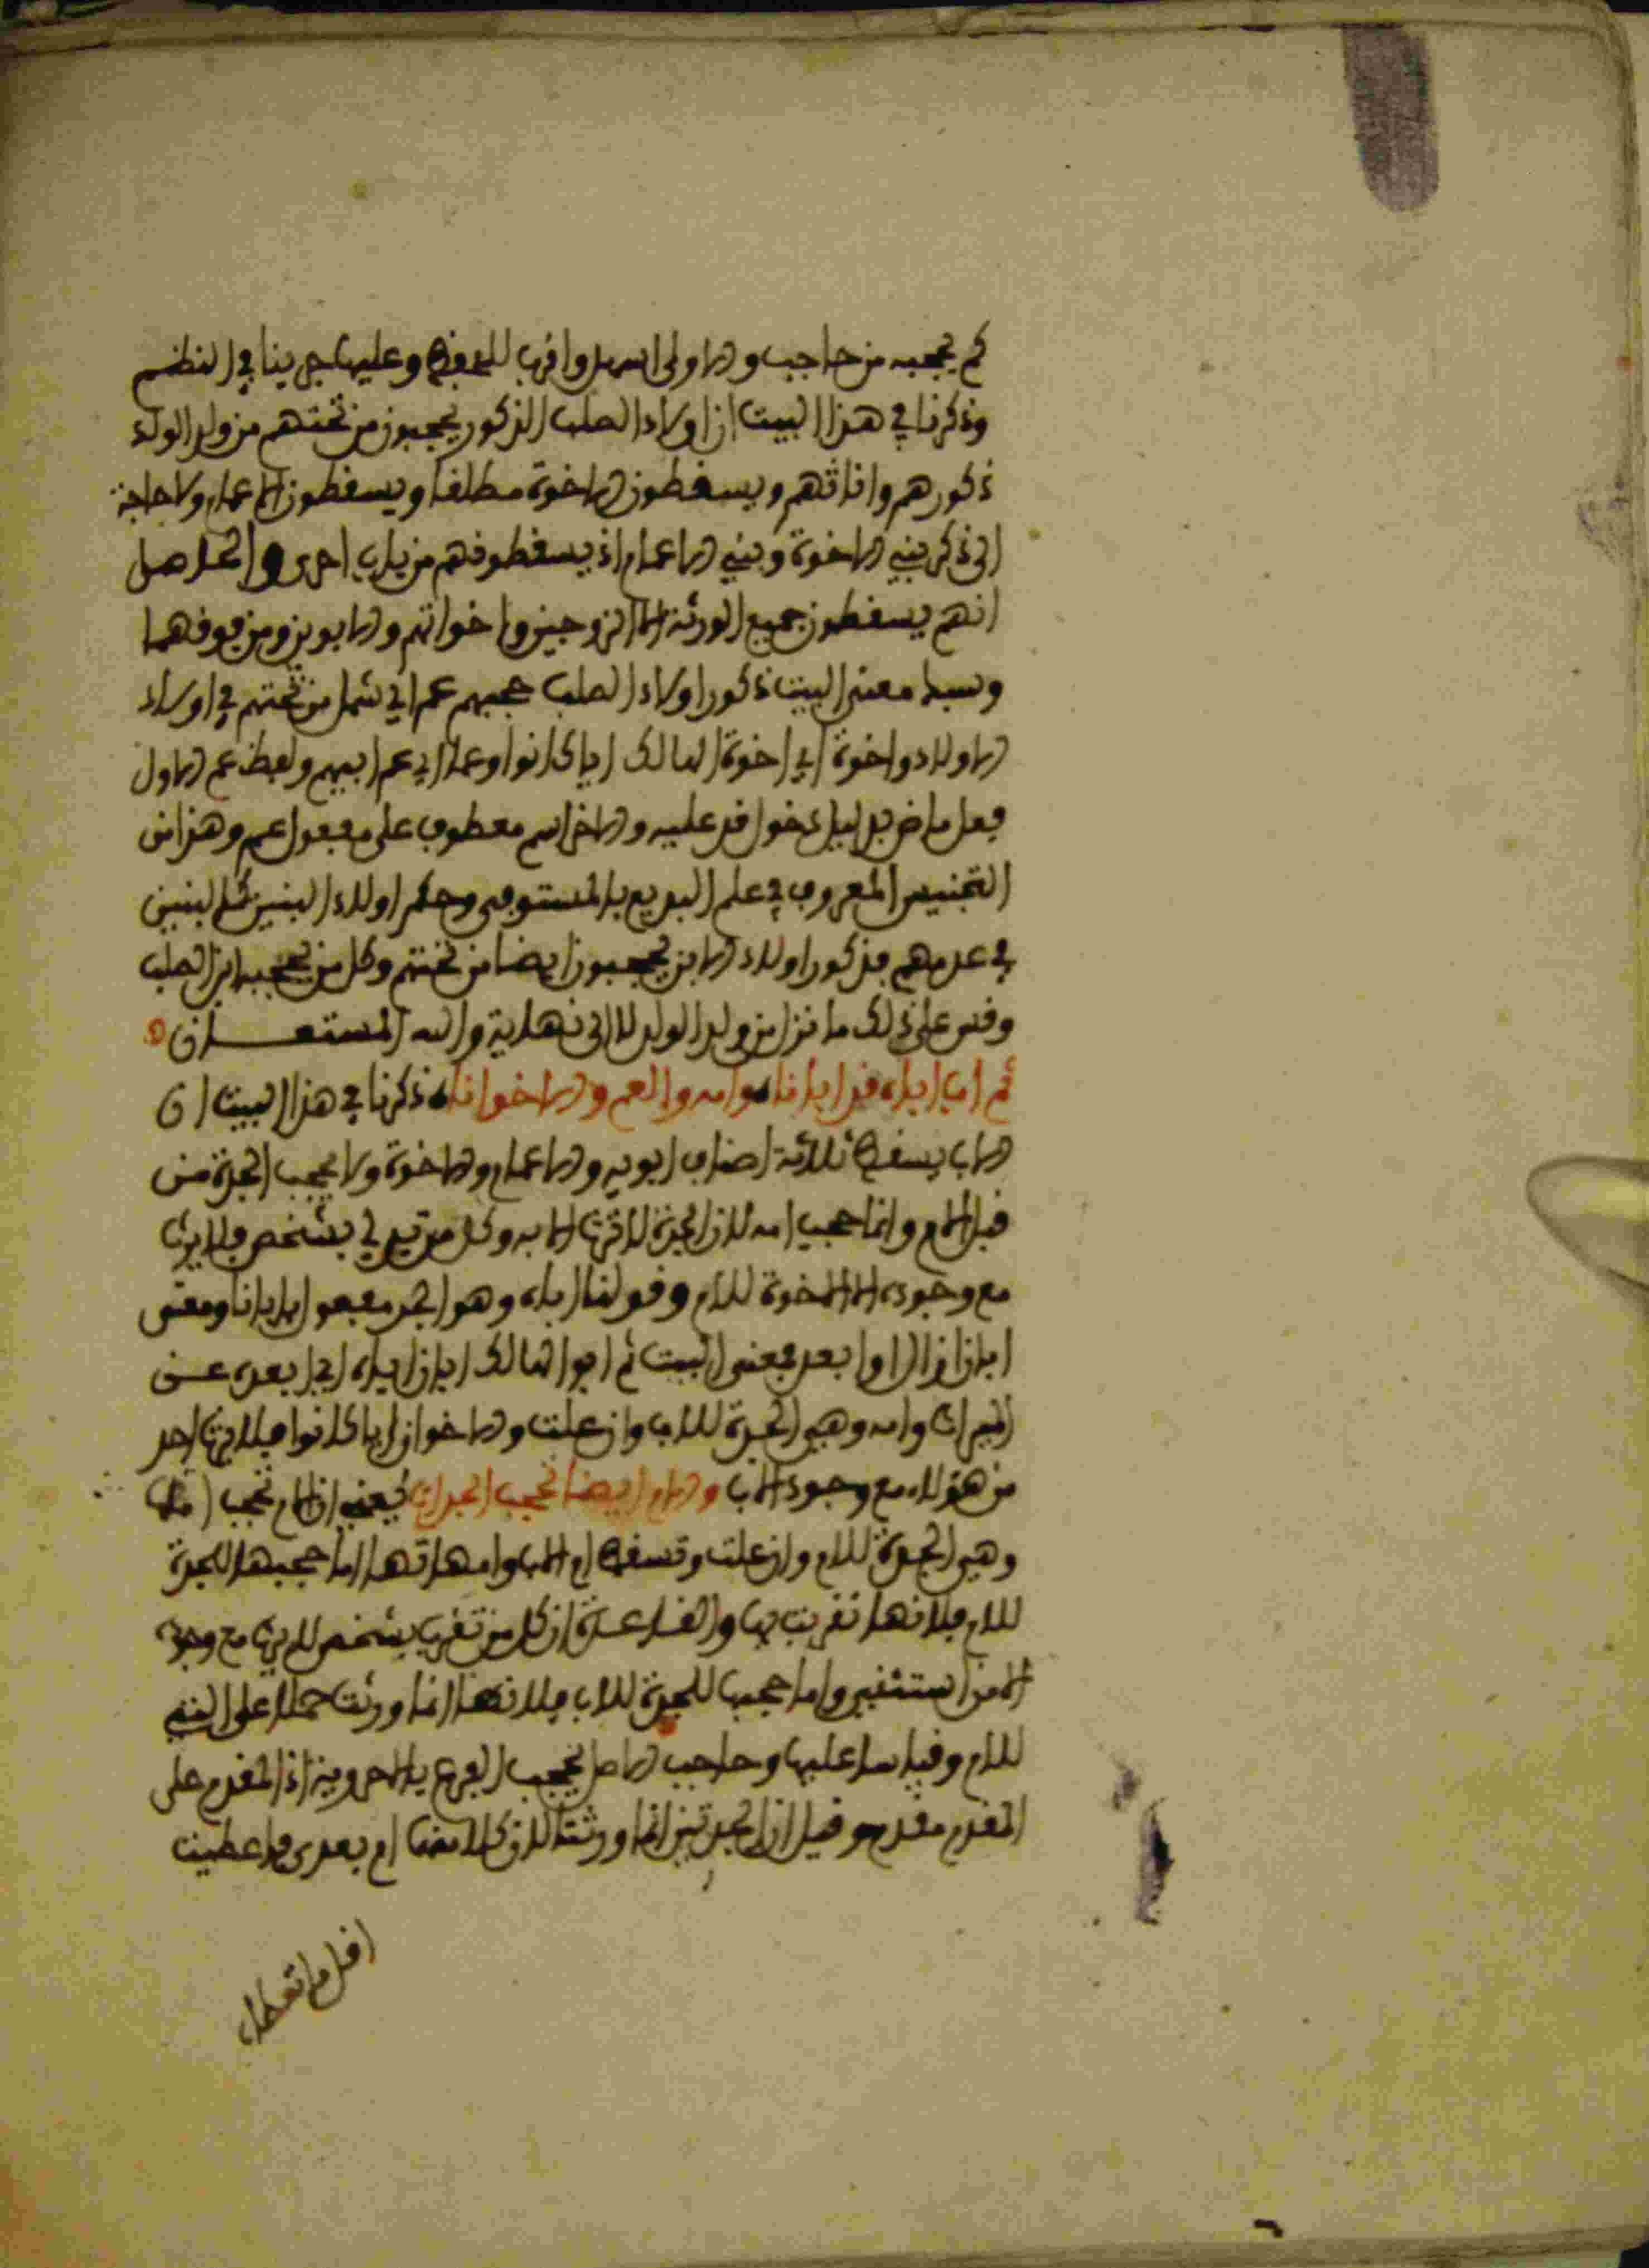 كم يحجبه من حاجب والاولى اسهل واقرب للحفظ وعليها جرينا في النظم
وذكرنا في هذا البيت ان اولاد الصلب الذكور يحجبون من تحتهم من ولد الولد
ذكورهم واناثهم ويسقطون الاخوة مطلقا ويسقطون الاعمام ولا حاجة
الى ذكر بني الاخوة وبني الاعمام اذ يسقطونهم من باب احرى والحاصل
انهم يسقطون جميع الورثة الا الزوجين واخواتهم والابوين ومن فوقهما
وسبك معنى البيت ذكور اولاد الصلب حجبهم عم اي شمل من تحتهم في اولاد
الاولاد واخوة اي اخوة الهالك ايا كانوا وعما اي عم ابيهم ولفظ عم الاول
فعل ماض بدليل دخول قد عليه والاخر اسم معطوف على مفعول عم وهذا من
التجنيس المعروف في علم البديع بالمستوفى وحكم اولاد البنين كالبنين
في عدمهم فذكور اولاد الابن يحجبون ايضا من تحتهم وكل من يحجبه ابن الصلب
وقس على ذلك ما نزل من ولد الولد لا الى نهاية والله المستعان
ثم اب اباه قد ابانا وامه والعم والاخوانا ذكرنا في هذا البيت ان
الاب يسقط ثلاثة اصناف ابويه والاعمام والاخوة ولا يحجب الجدة من
قبل الام وانما حجب امه لان الجدة لا ترث الا به وكل من يدلي بشخص فلا يرث
مع وجوده الا الاخوة للام وقولنا اباه وهو الجد مفعول ابانا ومعنى
ابان ازال او ابعد فمعنى البيت ثم ابو الهالك ابان اباه اي ابعده عن
الميراث وامه وهي الجدة للاب وان علت والاخوان ايا كانوا فلا يرث احد
من هؤلاء مع وجود الاب والام ايضا تحجب الجدات يعني ان الام تحجب امها
وهي الجدة للام وان علت وتسقط ام الاب وامهاتها اما حجبها للجدة
للام فلانها تقربت بها والقاعدة ان كل من تقرب بشخص لا يرث مع وجوده
الا من استثني واما حجبها للجدة للاب فلانها انما ورثت حملا على التي
للام وقياسا عليها وحاجب الاصل يحجب الفرع بالاحروية اذ المقدم على
المقدم مقدم وقيل ان الجدتين انما ورثتا لان كلا منهما ام بعدى فاعطيت
اقل ما تعطاه